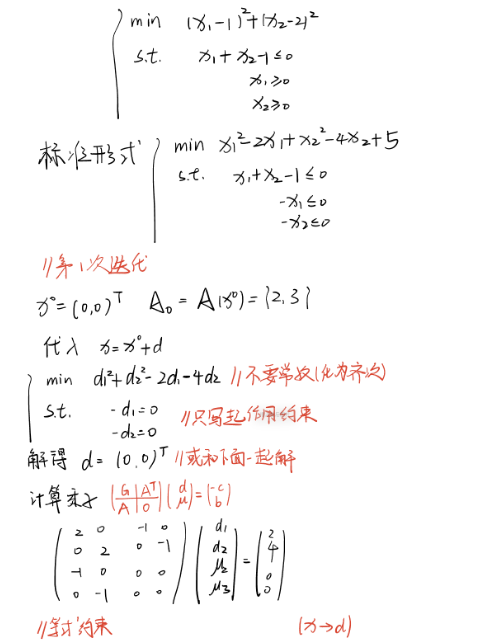 min (x₁-1)²+(x₂-2)²
s.t. x₁+x₂-1≤0
x₁≥0
x₂≥0
标准形式 min x₁²-2x₁+x₂²-4x₂+5
s.t. x₁+x₂-1≤0
-x₁≤0
-x₂≤0
//第1次迭代
x⁰=(0,0)ᵀ A₀=A(x⁰)={2,3}
代入 x=x⁰+d
min d₁²+d₂²-2d₁-4d₂ //不要常数(化为齐次)
s.t. -d₁=0
-d₂=0 //只写起作用约束
解得 d=(0,0)ᵀ //或和下面一起解
计算乘子 (G Aᵀ; A 0)(d; μ)=(-c; b)
(2 0 -1 0 (d₁ (2
0 2 0 -1 d₂ 4
-1 0 0 0 μ₂ = 0
0 -1 0 0) μ₃) 0)
//等式约束 (x→d)